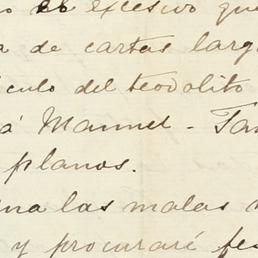 es excesivo que
de cartas larg
culo del teodolito
á Manuel - Tam
planos.
una las malas
y procuraré